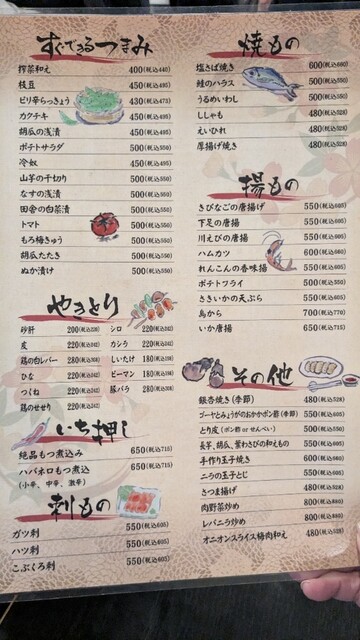 すぐできるつまみ
搾菜和え 400(税込440)
枝豆 450(税込495)
ピリ辛らっきょう 430(税込473)
カクテキ 450(税込495)
胡瓜の浅漬 450(税込495)
ポテトサラダ 500(税込550)
冷奴 450(税込495)
山芋の千切り 500(税込550)
なすの浅漬 500(税込550)
田舎の白菜漬 500(税込550)
トマト 500(税込550)
もろ味きゅう 500(税込550)
胡瓜たたき 500(税込550)
ぬか漬け 500(税込550)
やきとり
砂肝 200(税込220) シロ 220(税込242)
皮 220(税込242) カシラ 220(税込242)
鶏の白レバー 280(税込308) しいたけ 180(税込198)
ひな 220(税込242) ピーマン 180(税込198)
つくね 220(税込242) 豚バラ 280(税込308)
鶏のせせり 220(税込242)
いち押し
絶品もつ煮込み 650(税込715)
ハバネロもつ煮込 650(税込715)
(小辛、中辛、激辛)
刺もの
ガツ刺 550(税込605)
ハツ刺 550(税込605)
こぶくろ刺 550(税込605)
焼もの
塩さば焼き 600(税込660)
鮭のハラス 500(税込550)
うるめいわし 500(税込550)
ししゃも 480(税込528)
えいひれ 480(税込528)
厚揚げ焼き 480(税込528)
揚もの
きびなごの唐揚げ 550(税込605)
下足の唐揚 550(税込605)
川えびの唐揚 550(税込605)
ハムカツ 600(税込660)
れんこんの香味揚 550(税込605)
ポテトフライ 500(税込550)
さきいかの天ぷら 550(税込605)
鳥から 700(税込770)
いか唐揚 650(税込715)
その他
銀杏焼き(季節) 480(税込528)
ゴーヤとみょうがのおかかポン酢(季節) 550(税込605)
とり皮(ポン酢 or せんべい) 500(税込550)
長芋、胡瓜、茎わさびの和えもの 550(税込605)
手作り玉子焼き 600(税込660)
ニラの玉子とじ 550(税込605)
さつま揚げ 480(税込528)
肉野菜炒め 800(税込880)
レバニラ炒め 800(税込880)
オニオンスライス梅肉和え 480(税込528)